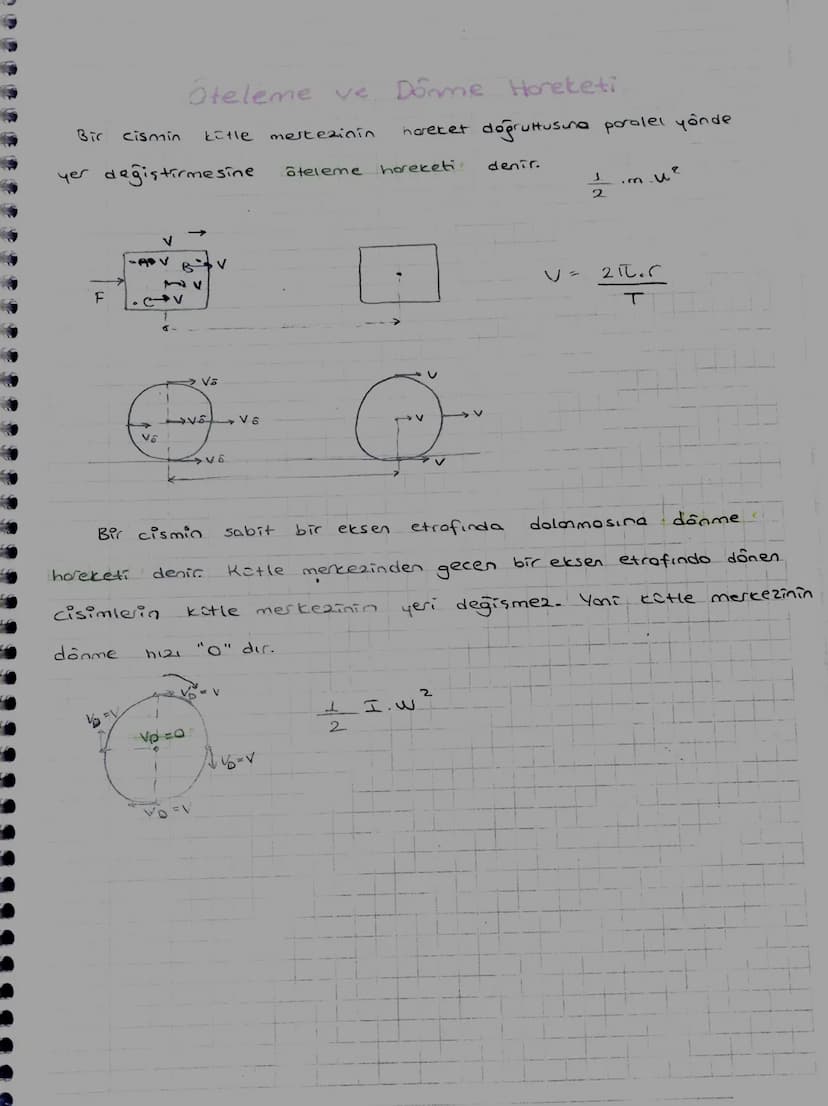 Öteleme ve Dönme Hareketi
Bir cismin kütle merkezinin hareket doğrultusuna paralel yönde
yer değiştirmesine öteleme hareketi denir.
1/2 .m.v²
V
V
B V
V
C V
F
V = 2π.r / T
Vö
Vö Vö
Vö
Vö
V
V V
V
Bir cismin sabit bir eksen etrafında dolanmasına dönme
hareketi denir. Kütle merkezinden geçen bir eksen etrafında dönen
cisimlerin kütle merkezinin yeri değişmez. Yani kütle merkezinin
dönme hızı "0" dır.
VD = V
VD = V
VD = 0
VD = V
VD = V
1/2 I.w²